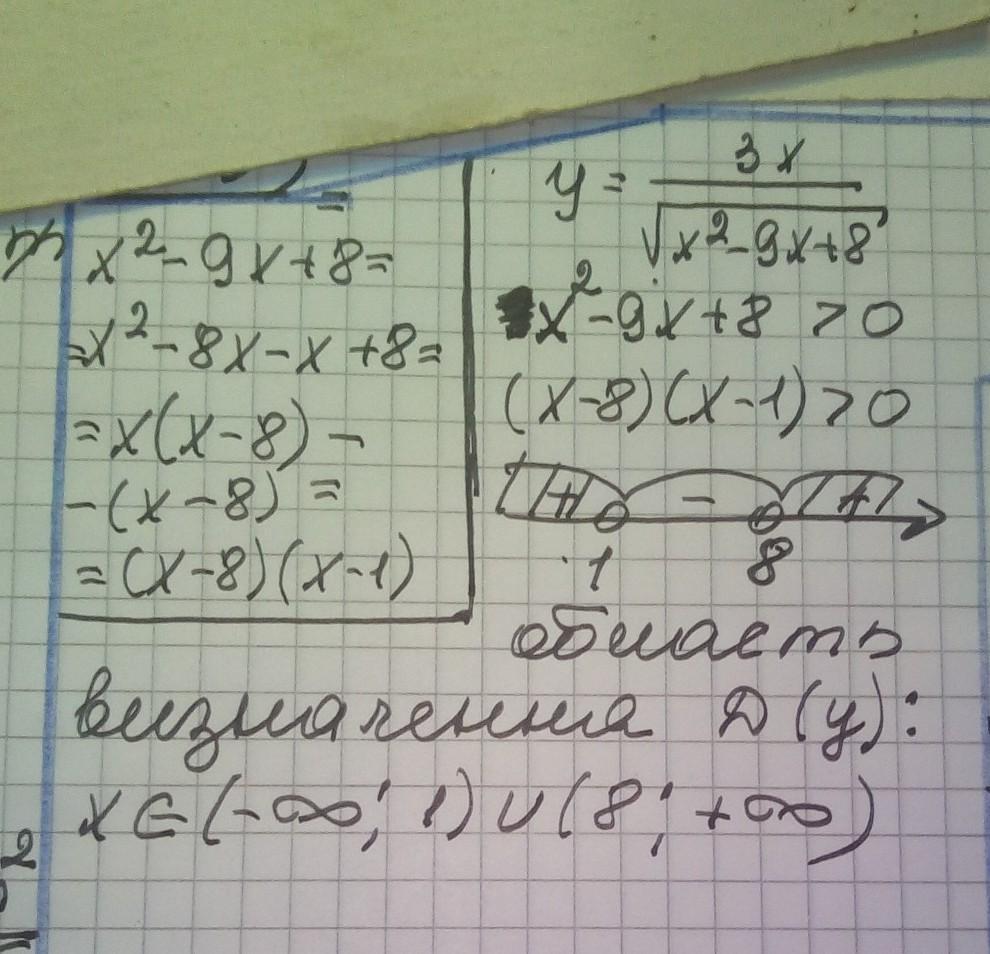 x²-9x+8=
=x²-8x-x+8=
=x(x-8)-
-(x-8)=
=(x-8)(x-1)
y = 3x / √(x²-9x+8)
x²-9x+8 >0
(x-8)(x-1)>0
+ - +
1 8
область
визначення D(y):
x∈(-∞; 1)∪(8; +∞)